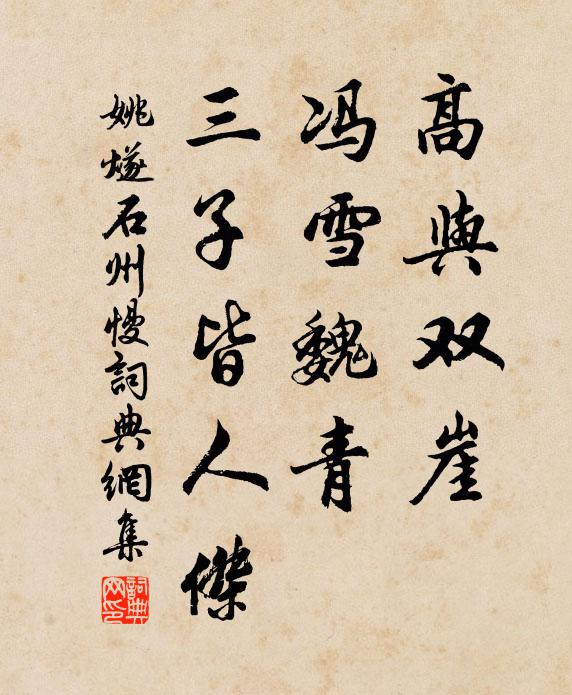 高與双崖
冯雪魏青
三子皆人傑
姚燧石州慢詞典網集
詞典網印